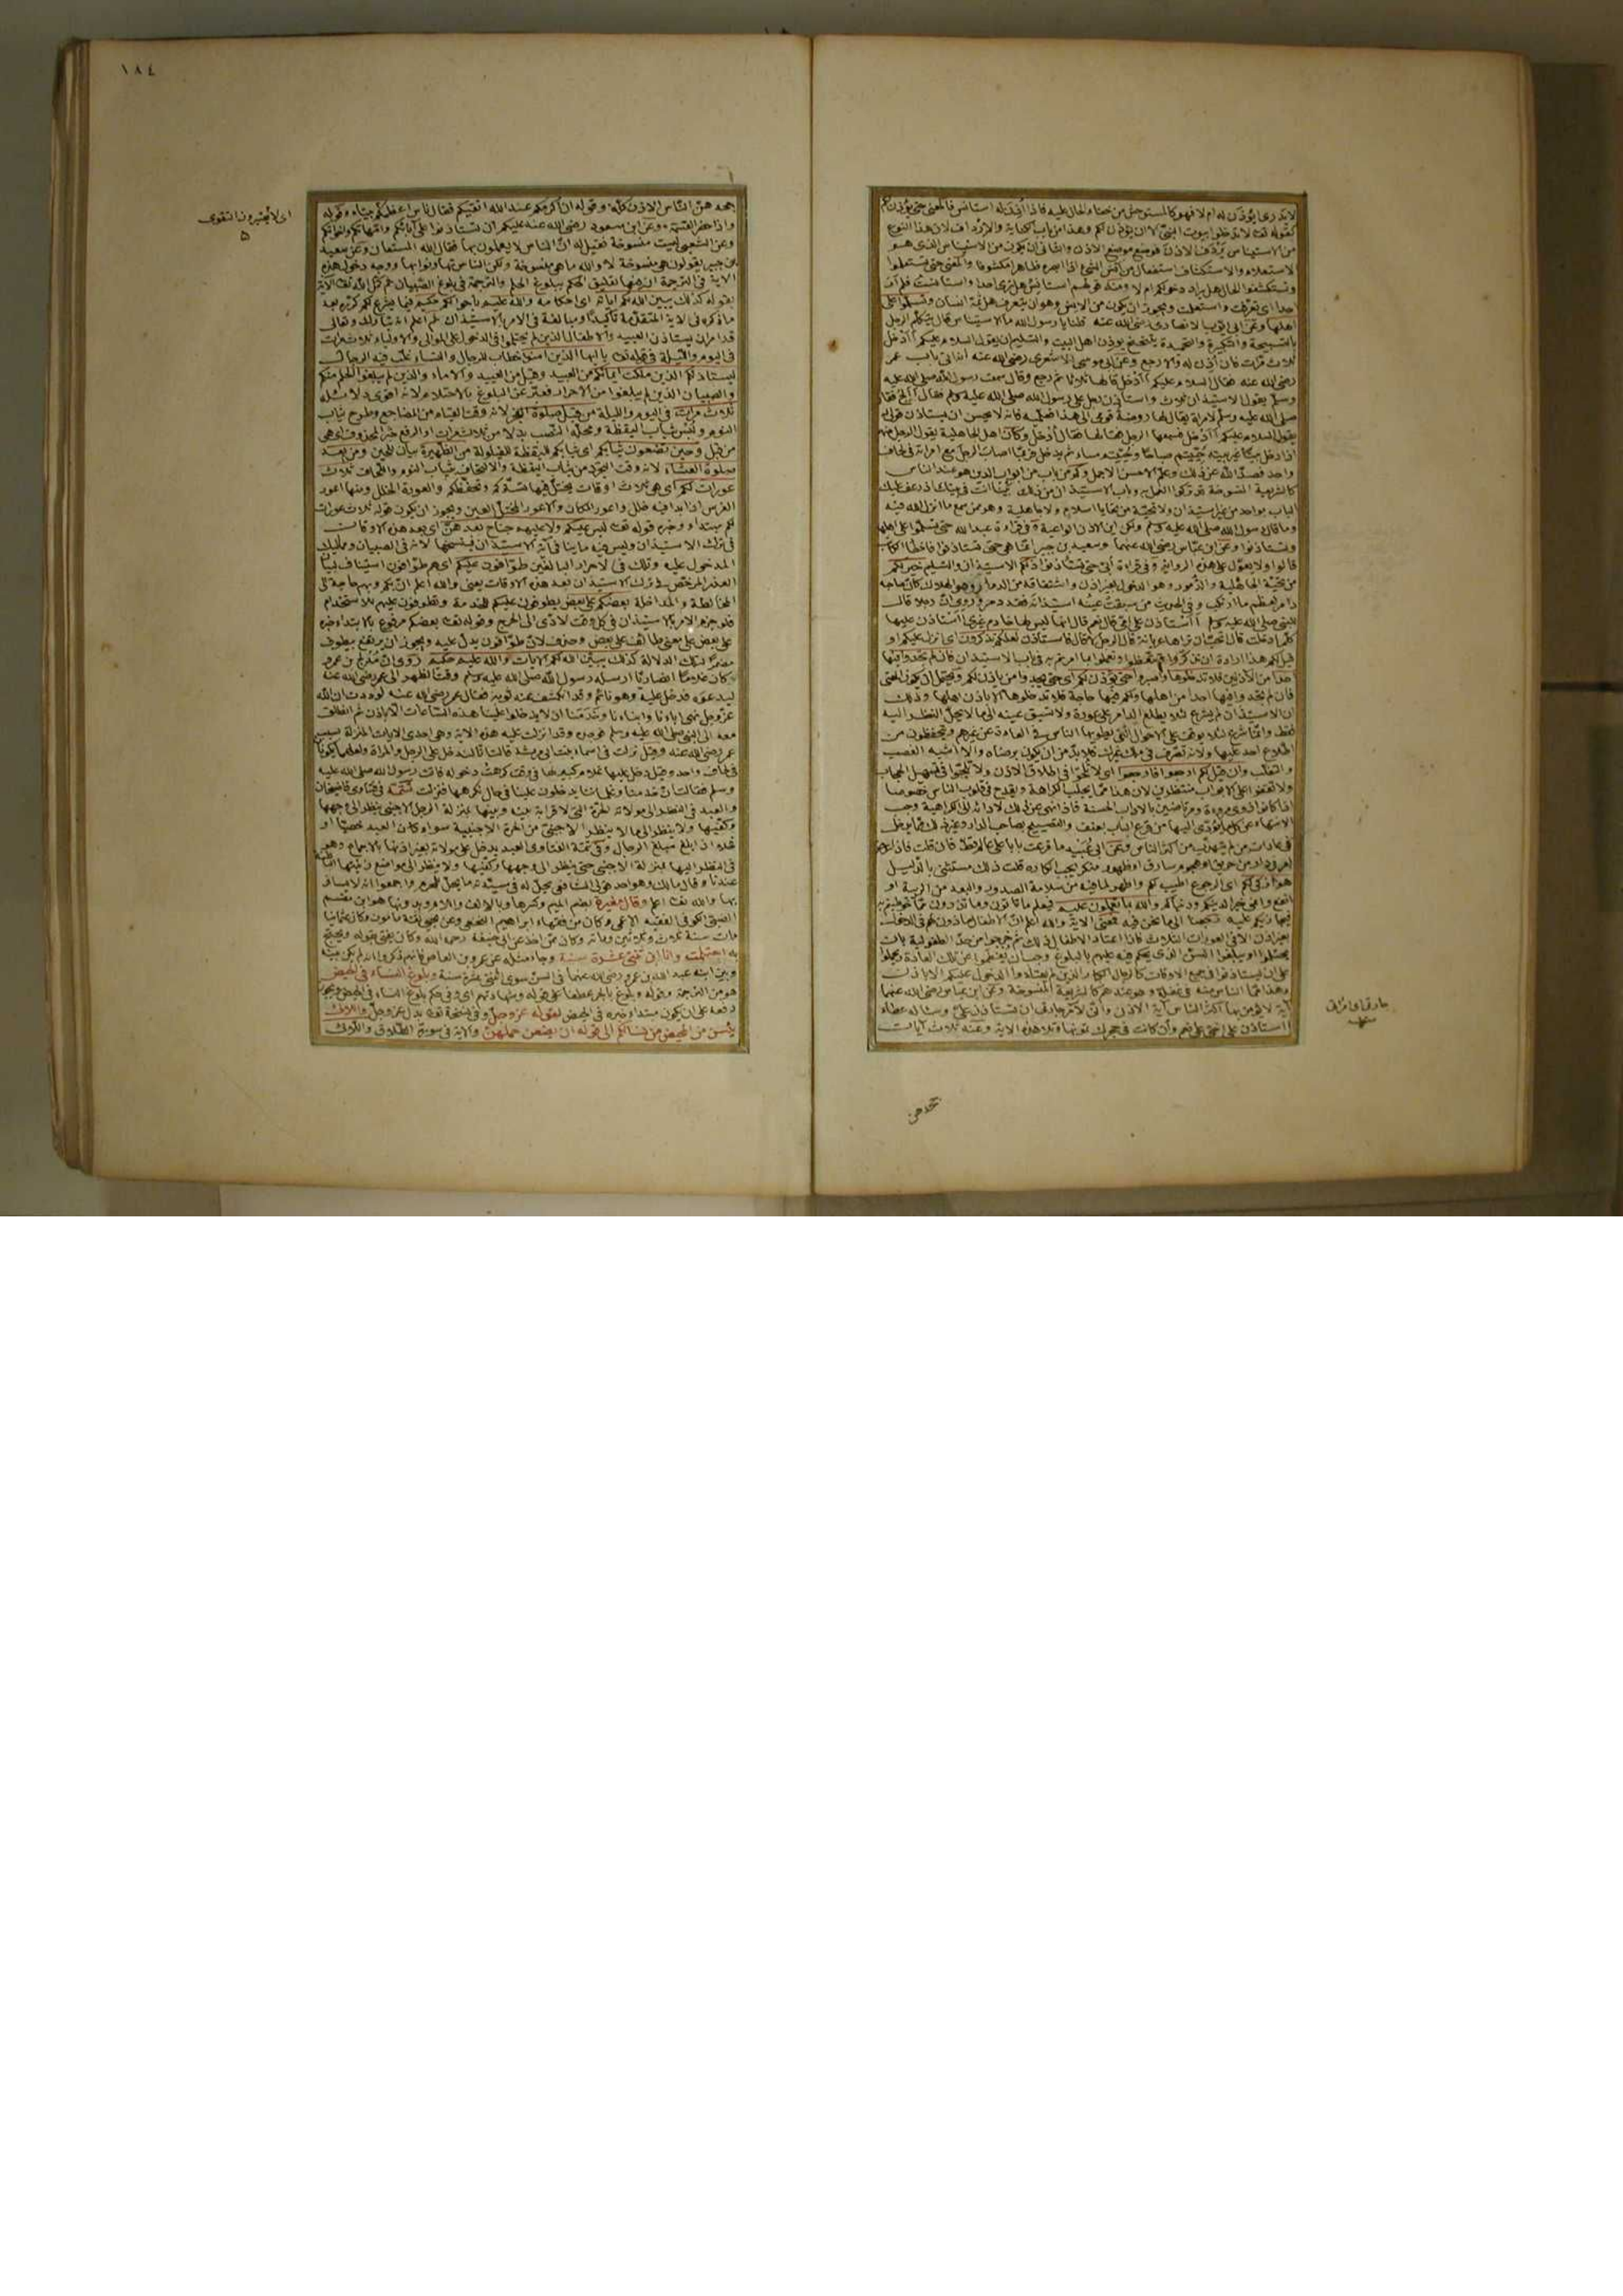 لا يدرى ايؤذن له ام لا فهو كالمستوحش من خفاء الحال عليه فاذا أُذن له استأنس فالمعنى حتى يؤذن لكم
كقوله تعالى لا تدخلوا بيوت النبى الا ان يؤذن لكم وهذا من باب الكناية والارداف لان هذا النوع
من الاستيناس يردف الاذن فوضع موضع الاذن والثانى ان يكون من الاستيناس الذى هو
الاستعلام والاستكشاف استفعال من انس الشئ اذا ابصره ظاهرا مكشوفا والمعنى حتى تستعلموا
وتستكشفوا الحال هل يراد دخولكم ام لا ومنه قولهم استأنس هل ترى احدا واستأنست فلم ار
احدا اى تعرفت واستعلمت ويجوز ان يكون من الانس وهو ان يتعرف هل ثمة انسان وتسلموا على
اهلها وعن ابى ايوب الانصارى رضى الله عنه قلنا يا رسول الله ما الاستيناس قال يتكلم الرجل
بالتسبيحة والتكبيرة والتحميدة يتنحنح يؤذن اهل البيت والتسليم ان يقول السلام عليكم أأدخل
ثلاث مرات فان اذن له والا رجع وعن ابى موسى الاشعرى رضى الله عنه انه اتى باب عمر
رضى الله عنه فقال السلام عليكم أأدخل قالها ثلاثا ثم رجع وقال سمعت رسول الله صلى الله عليه
وسلم يقول الاستيذان ثلاث واستأذن رجل على رسول الله صلى الله عليه وسلم فقال أألج فقال
صلى الله عليه وسلم لامرأة يقال لها روضة قومى الى هذا فعلميه فانه لا يحسن ان يستأذن قولى له
يقول السلام عليكم أأدخل فسمعها الرجل فقالها فقال أدخل وكان اهل الجاهلية يقول الرجل منهم
اذا دخل بيتا غير بيته حييتم صباحا وحييتم مساء ثم يدخل فربما اصاب الرجل مع امرأته فى لحاف
واحد فصد الله عن ذلك وعلم الاحسن الاجمل وكم من باب من ابواب الدين هو عند الناس
كالشريعة المنسوخة قد تركوا العمل به وباب الاستيذان من ذلك بينا انت فى بيتك اذ رعف عليك
الباب بواحد من غير استيذان ولا تحية من تحايا اسلام ولا جاهلية وهو ممن سمع ما انزل الله فيه
وما قال رسول الله صلى الله عليه وسلم ولكن اين الاذن الواعية وفى قراءة عبد الله حتى تسلموا على اهلها
وتستأذنوا وعن ابن عباس رضى الله عنهما وسعيد بن جبير انما هى حتى تستأذنوا فاخطأ الكاتب
قالوا ولا يعول على هذه الرواية وفى قراءة ابى حتى تستأذنوا ذلكم الاستيذان والتسليم خير لكم
من تحية الجاهلية والدمور وهو الدخول بغير اذن واشتقاقه من الدمار وهو الهلاك كأن صاحبه
دامر لعظم ما ارتكب وفى الحديث من سبقت عينه استيذانه فقد دمر وروى ان رجلا قال
للنبى صلى الله عليه وسلم أأستأذن على امى قال نعم قال انها ليس لها خادم غيرى أأستأذن عليها
كلما دخلت قال اتحب ان تراها عريانة قال الرجل لا قال فاستأذن لعلكم تذكرون اى انزل عليكم او
قيل لكم هذا ارادة ان تذكروا وتتعظوا وتعملوا بما امرتم به فى باب الاستيذان فان لم تجدوا فيها
احدا من الآذنين فلا تدخلوها واصبروا حتى يؤذن لكم اى حتى تجدوا من ياذن لكم ويحتمل ان يكون المعنى
فان لم تجدوا فيها احدا من اهلها ولكم فيها حاجة فلا تدخلوها الا باذن اهلها وذلك
ان الاستيذان لم يشرع لئلا يطلع الدامر على عورة ولا تسبق عينه الى ما لا يحل النظر اليه
فقط وانما شرع لئلا يوقف على الاحوال التى يطويها الناس فى العادة عن غيرهم ويتحفظون من
اطلاع احد عليها ولانه تصرف فى ملك غيرك فلا بد من ان يكون برضاه والا اشبه الغصب
والتغلب وان قيل لكم ارجعوا فارجعوا اى لا تلحوا فى اطلاق الاذن ولا تلجوا فى تسهيل الحجاب
ولا تقفوا على الابواب منتظرين لان هذا مما يجلب الكراهة ويقدح فى قلوب الناس خصوصا
اذا كانوا ذوى مروءة ومرتاضين بالآداب الحسنة فاذا نهى عن ذلك لادائه الى الكراهية وجب
الانتهاء عن كل ما يؤدى اليها من قرع الباب بعنف والتصييح بصاحب الدار وغير ذلك مما يدخل
فى عادات من لم يتهذب من اكثر الناس وعن ابى عبيد ما قرعت بابا على عالم قط فان قلت فاذا عرض
امر فى دار من حريق او هجوم سارق او ظهور منكر يجب انكاره قلت ذلك مستثنى بالدليل
هو ازكى لكم اى الرجوع اطيب لكم واطهر لما فيه من سلامة الصدور والبعد من الريبة او
انفع وانمى خيرا لدينكم ودنياكم والله بما تعملون عليم فيعلم ما تاتون وما تذرون مما خوطبتم به
فيجازيكم عليه فمعنى الآية والله اعلم ان الاطفال ماذون لهم فى الدخول
بغير اذن الا فى العورات الثلاث فاذا اعتاد الاطفال ذلك ثم خرجوا من حد الطفولية بان
يحتلموا او يبلغوا السن الذى يحكم فيه عليهم بالبلوغ وجب ان يفطموا عن تلك العادة ويحملوا
على ان يستأذنوا فى جميع الاوقات كالرجال الكبار الذين لم يعتادوا الدخول عليكم الا باذن
وهذا مما الناس منه فى غفلة وهو عندهم كالشريعة المنسوخة وعن ابن عباس رضى الله عنهما
آية لا يؤمن بها اكثر الناس آية الاذن وانى لآمر جارتى ان تستأذن على وسأله عطاء
أأستأذن على اختى قال نعم وان كانت فى حجرك تمونها وتلا هذه الآية وعنه ثلاث آيات
جحدهن
١٨٤
جحدهن الناس الاذن كله وقوله ان اكرمكم عند الله اتقيكم فقال ناس اعظمكم بيتا وقوله
واذا حضر القسمة وعن ابن مسعود رضى الله عنه عليكم ان تستأذنوا على آبائكم وامهاتكم واخواتكم
وعن الشعبى ليست منسوخة فقيل له ان الناس لا يعملون بها فقال الله المستعان وعن سعيد
بن جبير يقولون هى منسوخة لا والله ما هى منسوخة ولكن الناس تهاونوا بها ووجه دخول هذه
الآية فى الترجمة ان فيها تعليق الحكم ببلوغ الحلم والترجمة فى بلوغ الصبيان ثم كمل الله تعالى الآية
بقوله كذلك يبين الله لكم آياته اى احكامه والله عليم باحوالكم حكيم فيما يشرع لكم كرره بعد
ما ذكره فى الآية المتقدمة تأكيدا ومبالغة فى الامر بالاستيذان ثم اعلم انه تبارك وتعالى
قد امر ان يستأذن العبيد والاطفال الذين لم يحتلموا فى الدخول على الموالى والاولياء ثلاث مرات
فى اليوم والليلة فى قوله تعالى يا ايها الذين آمنوا خطاب للرجال والنساء غلب فيه الرجال
ليستأذنكم الذين ملكت ايمانكم من العبيد وقيل من العبيد والاماء والذين لم يبلغوا الحلم منكم
والصبيان الذين لم يبلغوا من الاحرار فعبر عن البلوغ بالاحتلام لانه اقوى دلائله
ثلاث مرات فى اليوم والليلة من قبل صلوة الفجر لانه وقت القيام من المضاجع وطرح ثياب
النوم ولبس ثياب اليقظة ومحله النصب بدلا من ثلاث مرات او الرفع خبر المحذوف اى هى
من قبل وحين تضعون ثيابكم اى ثيابكم لليقظة للقيلولة من الظهيرة بيان للحين ومن بعد
صلوة العشاء لانه وقت التجرد من ثياب اليقظة والالتحاف بثياب النوم ثلاث
عورات لكم اى هى ثلاث اوقات يختل فيها تستركم وتحفظكم والعورة الخلل ومنها اعور
الفرس اذا بدا فيه خلل واعور المكان والاعور المختل العين ويجوز ان يكون قوله ثلاث عورات
لكم مبتدأ وخبره قوله تعالى ليس عليكم ولا عليهم جناح بعدهن اى بعد هذه الاوقات
فى ترك الاستيذان وليس فيه ما ينافى آية الاستيذان فينسخها لانه فى الصبيان ومماليك
المدخول عليه وتلك فى الاحرار البالغين طوافون عليكم اى هم طوافون استيناف لبيان
العذر المرخص فى ترك الاستيذان بعد هذه الاوقات يعنى والله اعلم ان بكم وبهم حاجة الى
المخالطة والمداخلة بعضكم على بعض يطوفون عليكم للخدمة وتطوفون عليهم للاستخدام
فلو جزم الامر بالاستيذان فى كل وقت لادى الى الحرج وقوله تعالى بعضكم مرفوع بالابتداء خبره
على بعض على معنى طائف على بعض وحذف لان طوافون يدل عليه ويجوز ان يرتفع بيطوف
مضمرا لتلك الدلالة كذلك يبين الله لكم الآيات والله عليم حكيم روى ان مدلج بن عمرو
كان غلاما انصاريا ارسله رسول الله صلى الله عليه وسلم وقت الظهر الى عمر رضى الله عنه
ليدعوه فدخل عليه وهو نائم وقد انكشف عنه ثوبه فقال عمر رضى الله عنه لوددت ان الله
عز وجل نهى آباءنا وابناءنا وخدمنا ان لا يدخلوا علينا هذه الساعات الا باذن ثم انطلق
معه الى النبى صلى الله عليه وسلم فوجده وقد انزلت عليه هذه الآية وهى احدى الآيات المنزلة بسبب
عمر رضى الله عنه وقيل نزلت فى اسماء بنت ابى مرثد قالت انا لندخل على الرجل والمرأة ولعلهما يكونا
فى لحاف واحد وقيل دخل عليها غلام كبير لها فى وقت كرهت دخوله فاتت رسول الله صلى الله عليه
وسلم فقالت ان خدمنا وغلماننا يدخلون علينا فى حال نكرهها فنزلت تتمة فى فتاوى قاضيخان
والعبد فى النظر الى مولاته الحرة التى لا قرابة بينه وبينها بمنزلة الرجل الاجنبى ينظر الى وجهها
وكفيها ولا ينظر الى ما لا ينظر الاجنبى من الحرة الاجنبية سواء كان العبد خصيا او
فحلا اذا بلغ مبلغ الرجال وفى تتمة الفتاوى العبد يدخل على مولاته بغير اذنها بالاجماع وهو
فى النظر اليها بمنزلة الاجنبى حتى ينظر الى وجهها وكفيها ولا ينظر الى مواضع زينتها الباطنة
عندنا وقال مالك وهو احد قولى الشافعى يحل له فى سيدته ما يحل للمحرم واجمعوا انه لا يسافر
بها والله تعالى اعلم وقال مغيرة بضم الميم وكسرها وبالالف واللام وبدونها هو ابن مقسم
الضبى الكوفى الفقيه الاعمى وكان من فقهاء ابراهيم النخعى وعن يحيى ثقة مأمون وكان عثمانيا
مات سنة ثلاث وثلاثين ومائة وكان ممن اخذ عنه ابى حنيفة رحمه الله وكان يفتى بقوله ويحتج
به احتلمت وانا ابن ثنتى عشرة سنة وجاء مثله عن عمرو بن العاص فانهم ذكروا انه لم يكن بينه
وبين ابنه عبد الله بن عمرو رضى الله عنهما فى السن سوى اثنتى عشرة سنة وبلوغ النساء فى الحيض
هو من الترجمة وقوله وبلوغ بالجر عطفا على قوله وشهادتهم اى وفى حكم بلوغ النساء فى الحيض ويجوز
رفعه على ان يكون مبتدأ وخبره فى الحيض لقوله عز وجل وفى نسخة تعالى بدل عز وجل واللائى
يئسن من المحيض من نسائكم الى قوله ان يضعن حملهن والآية فى سورة الطلاق واللائى
اى لا يعتبرون التقوى